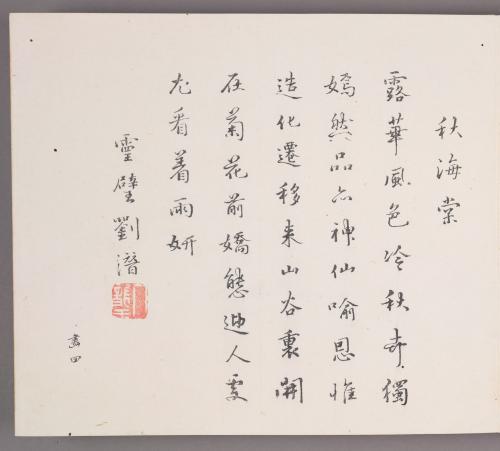 秋海棠
露華風色冷秋卉獨
嫣然品亦神仙喻恩惟
造化遷移来山谷裏開
在菊花前嬌態迎人雯
尤看着雨妍
靈壁劉潛
畫四